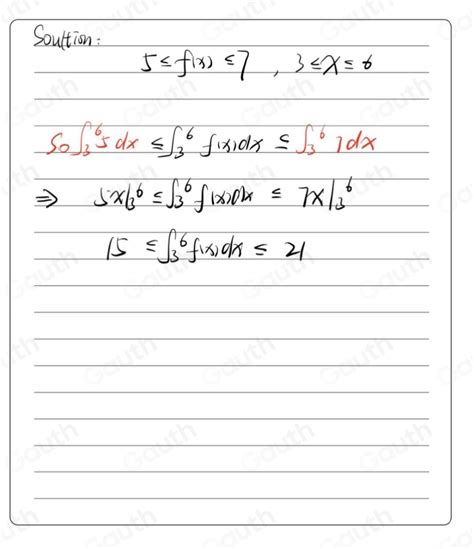 Soultion:
5 ≤ f(x) ≤ 7 , 3 ≤ x ≤ 6
So ∫₃⁶ 5 dx ≤ ∫₃⁶ f(x)dx ≤ ∫₃⁶ 7 dx
⇒ 5x|₃⁶ ≤ ∫₃⁶ f(x)dx ≤ 7x|₃⁶
15 ≤ ∫₃⁶ f(x)dx ≤ 21
Gauth